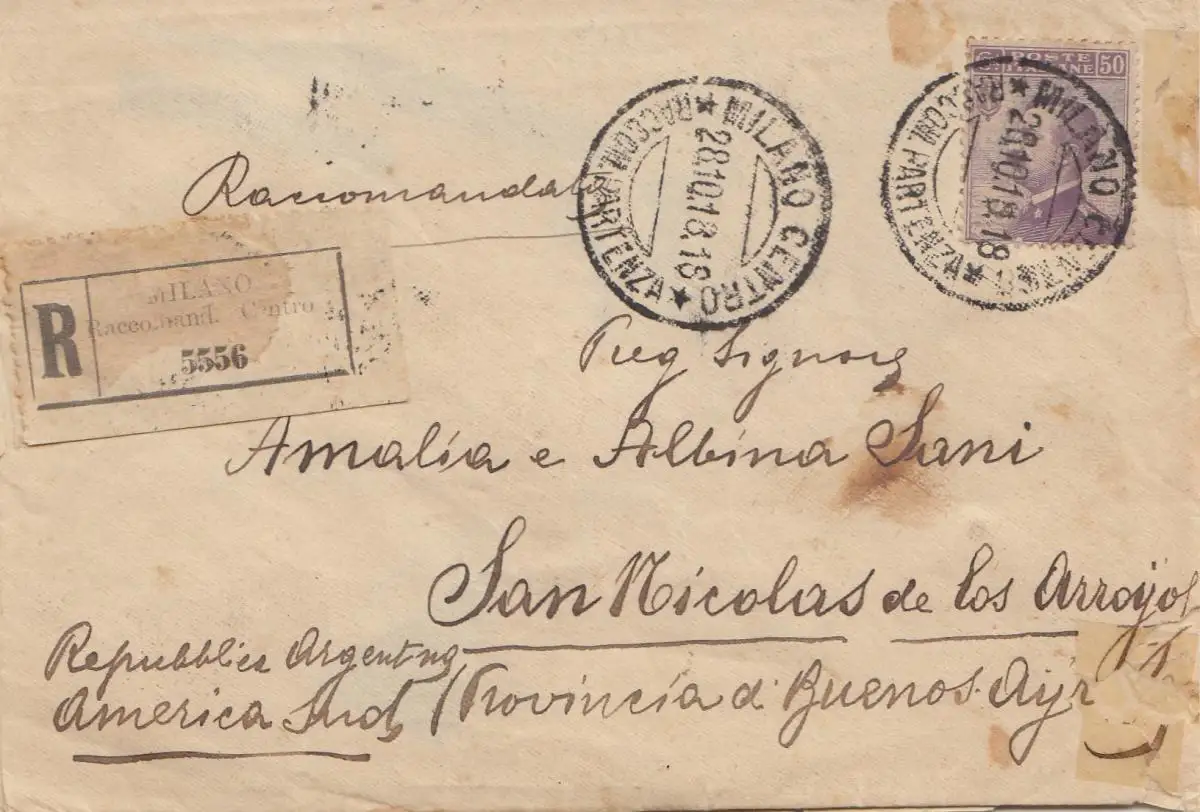 POSTE
ITALIANE
50
MILANO CENTRO
RACCOM. PARTENZA
28.10.18.18
MILANO CENTRO
RACCOM. PARTENZA
28.10.18.18
Raccomandata
R
MILANO
Raccomand. Centro
5556
Preg Signore
Amalia e Albina Sani
San Nicolas de los Arroyos
Repubblica Argentina
America Sud (Provincia di Buenos Ayres)